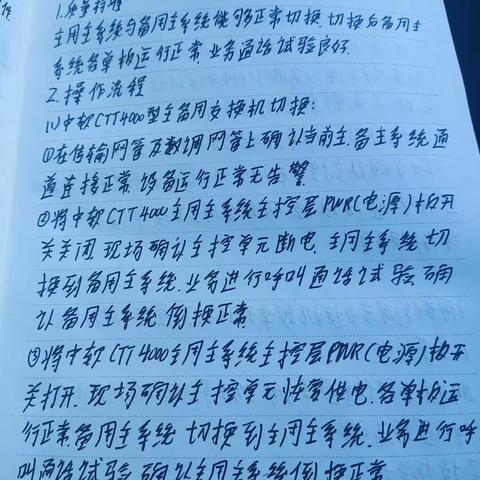 1.质量标准
主用主系统与备用主系统能够正常切换,切换后备用主
系统各单板运行正常,业务通话试验良好.
2.操作流程
(1)中软CTT4000型主备用交换机切换:
①在传输网管及数调网管上确认当前主.备主系统通
道连接正常,设备运行正常无告警.
②将中软CTT4000主用主系统主控层PWR(电源)板开
关关闭,现场确认主控单元断电,主用主系统切
换到备用主系统,业务进行呼叫通话试验确
认备用主系统倒换正常
③将中软CTT4000主用主系统主控层PWR(电源)板开
关打开,现场确认主控单元恢复供电,各单板运
行正常备用主系统切换到主用主系统,业务进行呼
叫通话试验确认主用主系统倒换正常